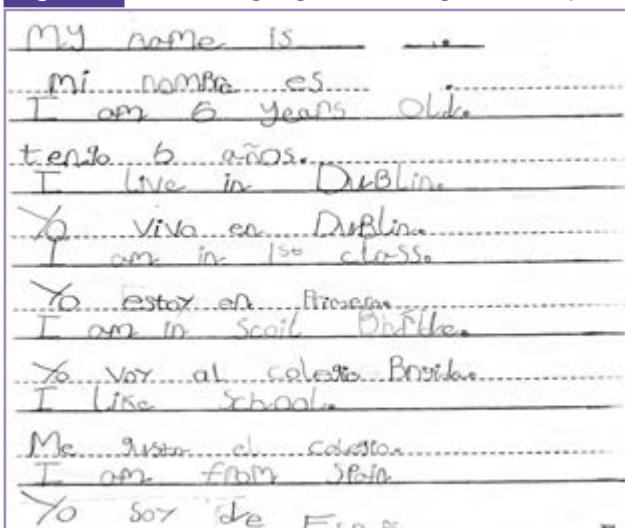 My name is
mi nombre es
I am 6 years old.
tengo 6 años.
I live in DuBlin.
Yo vivo en DuBlin.
I am in 1st class.
Yo estoy en Primero.
I am in Scoil Bhríde.
Yo voy al colegio Brígida.
I like School.
Me gusta el colegio.
I am from Spain
Yo soy de